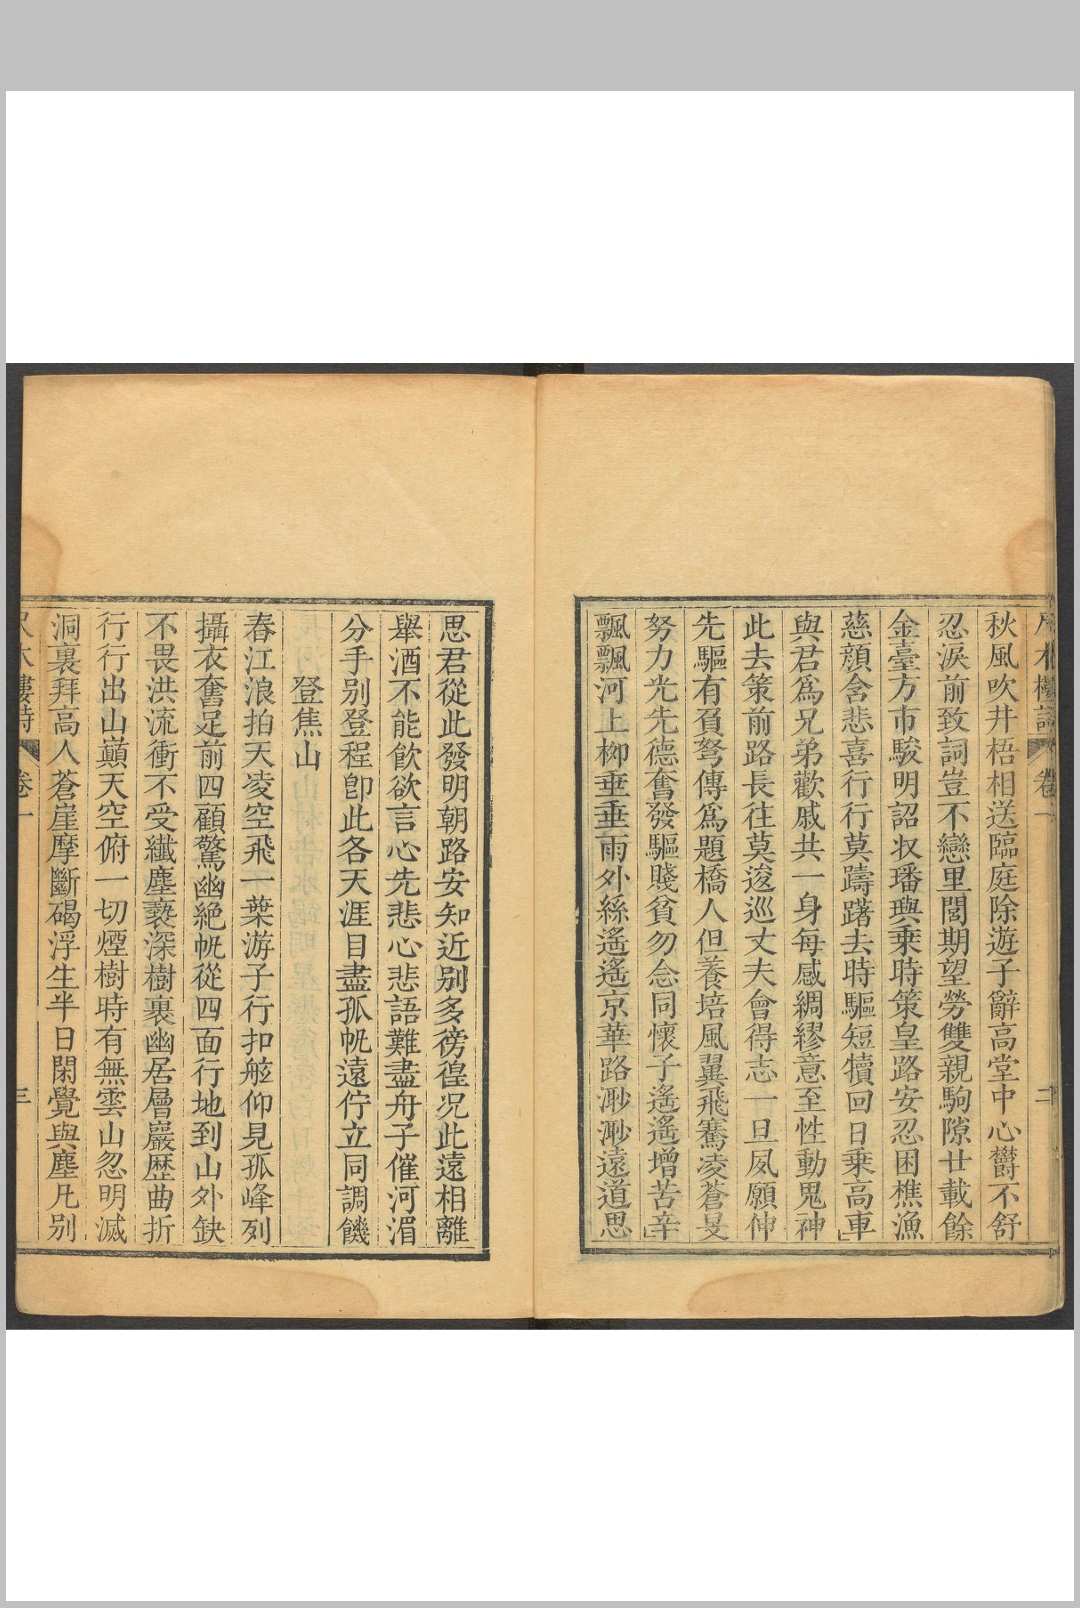 秋風吹井梧相送臨庭除遊子辭高堂中心鬱不舒
忍淚前致詞豈不戀里閭期望勞雙親駒隙廿載餘
金臺方市駿明詔收璠璵乗時策皇路安忍困樵漁
慈顏含悲喜行行莫躊躇去時驅短犢回日乗高車
與君爲兄弟歡戚共一身每感綢繆意至性動鬼神
此去策前路長往莫逡巡丈夫會得志一旦夙願伸
先驅有負弩傳爲題橋人但養培風翼飛騫凌蒼旻
努力光先德奮發驅賤貧勿念同懷子遙遙增苦辛
飄飄河上柳垂垂雨外絲遙遙京華路渺渺遠道思
思君從此發明朝路安知近别多徬徨况此遠相離
舉酒不能飲欲言心先悲心悲語難盡舟子催河湄
分手别登程卽此各天涯目盡孤帆遠佇立同調饑
登焦山
春江浪拍天凌空飛一葉游子行扣舷仰見孤峰列
攝衣奮足前四顧驚幽絶帆從四面行地到山外缺
不畏洪流衝不受纖塵褻深樹裏幽居層巖歴曲折
行行出山巔天空俯一切煙樹時有無雲山忽明滅
洞裏拜高人蒼崖摩斷碣浮生半日閑覺與塵凡别
卷一
三